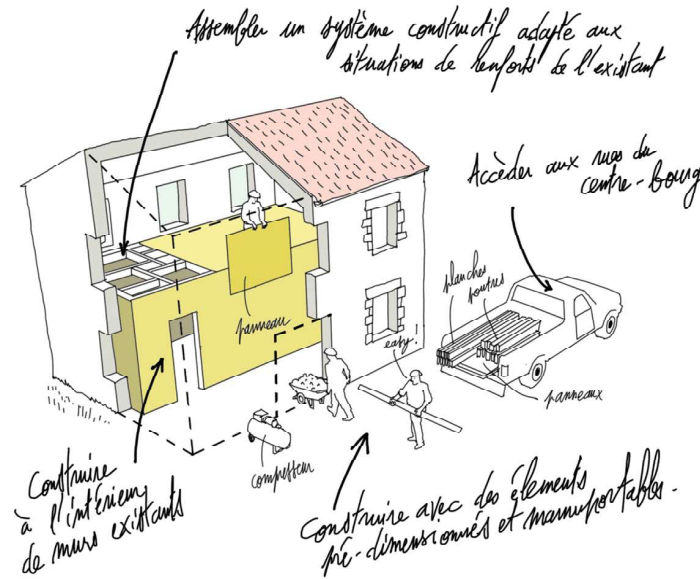 Assembler un système constructif adapté aux
situations de renforts de l'existant
Accèder aux rues du
centre-bourg
planches
poutres
panneau
easy!
panneaux
compresseur
Construire
à l'intérieur
de murs existants
Construire avec des élements
pré-dimensionnés et manuportables.